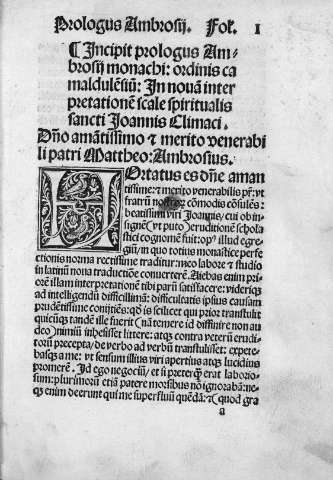 Prologus Ambrosij. Fol. I
¶ Incipit prologus Am-
brosij monachi: ordinis ca
maldulēsiū: In nouā inter
pretationē scale spiritualis
sancti Joannis Climaci.
Dño amātissimo ⁊ merito venerabi
li patri Mattheo: Ambrosius.
HOrtatus es dñe aman
tissime: ⁊ merito venerabilis pr̄: vt
fratrū nostror̄ cōmodis cōsulēs:
beatissimi viri Joannis, cui ob in-
signē (vt puto) eruditionē schola
stici cognomē fuit: opꝰ illud egre-
giū, in quo totius monastice perfe
ctionis norma rectissime traditur: meo labore ⁊ studio
in latinū noua traductione conuerterē. Aiebas enim pri
orē illam interpretationē tibi parū satisfacere: viderique
ad intelligendū difficillimā: difficultatis ipsius causam
prudētissime coniiciēs: qȝ is scilicet qui prior transtulit
quicūqȝ tandē ille fuerit (nā temere id diffinire non au
deo) nimiū inhesisset littere: atqȝ contra veterū erudi-
torū precepta: de verbo ad verbū transtulisset: expete-
basqȝ a me: vt sensum illius viri apertius atqȝ lucidius
promerē. Id ego negociū, et si preterqȝ erat laborio-
sum: plurimorū etiā patere morsibus nō ignorabā: ne-
qȝ enim deerunt qui me superfluū quēdā: ⁊ quod gra
a